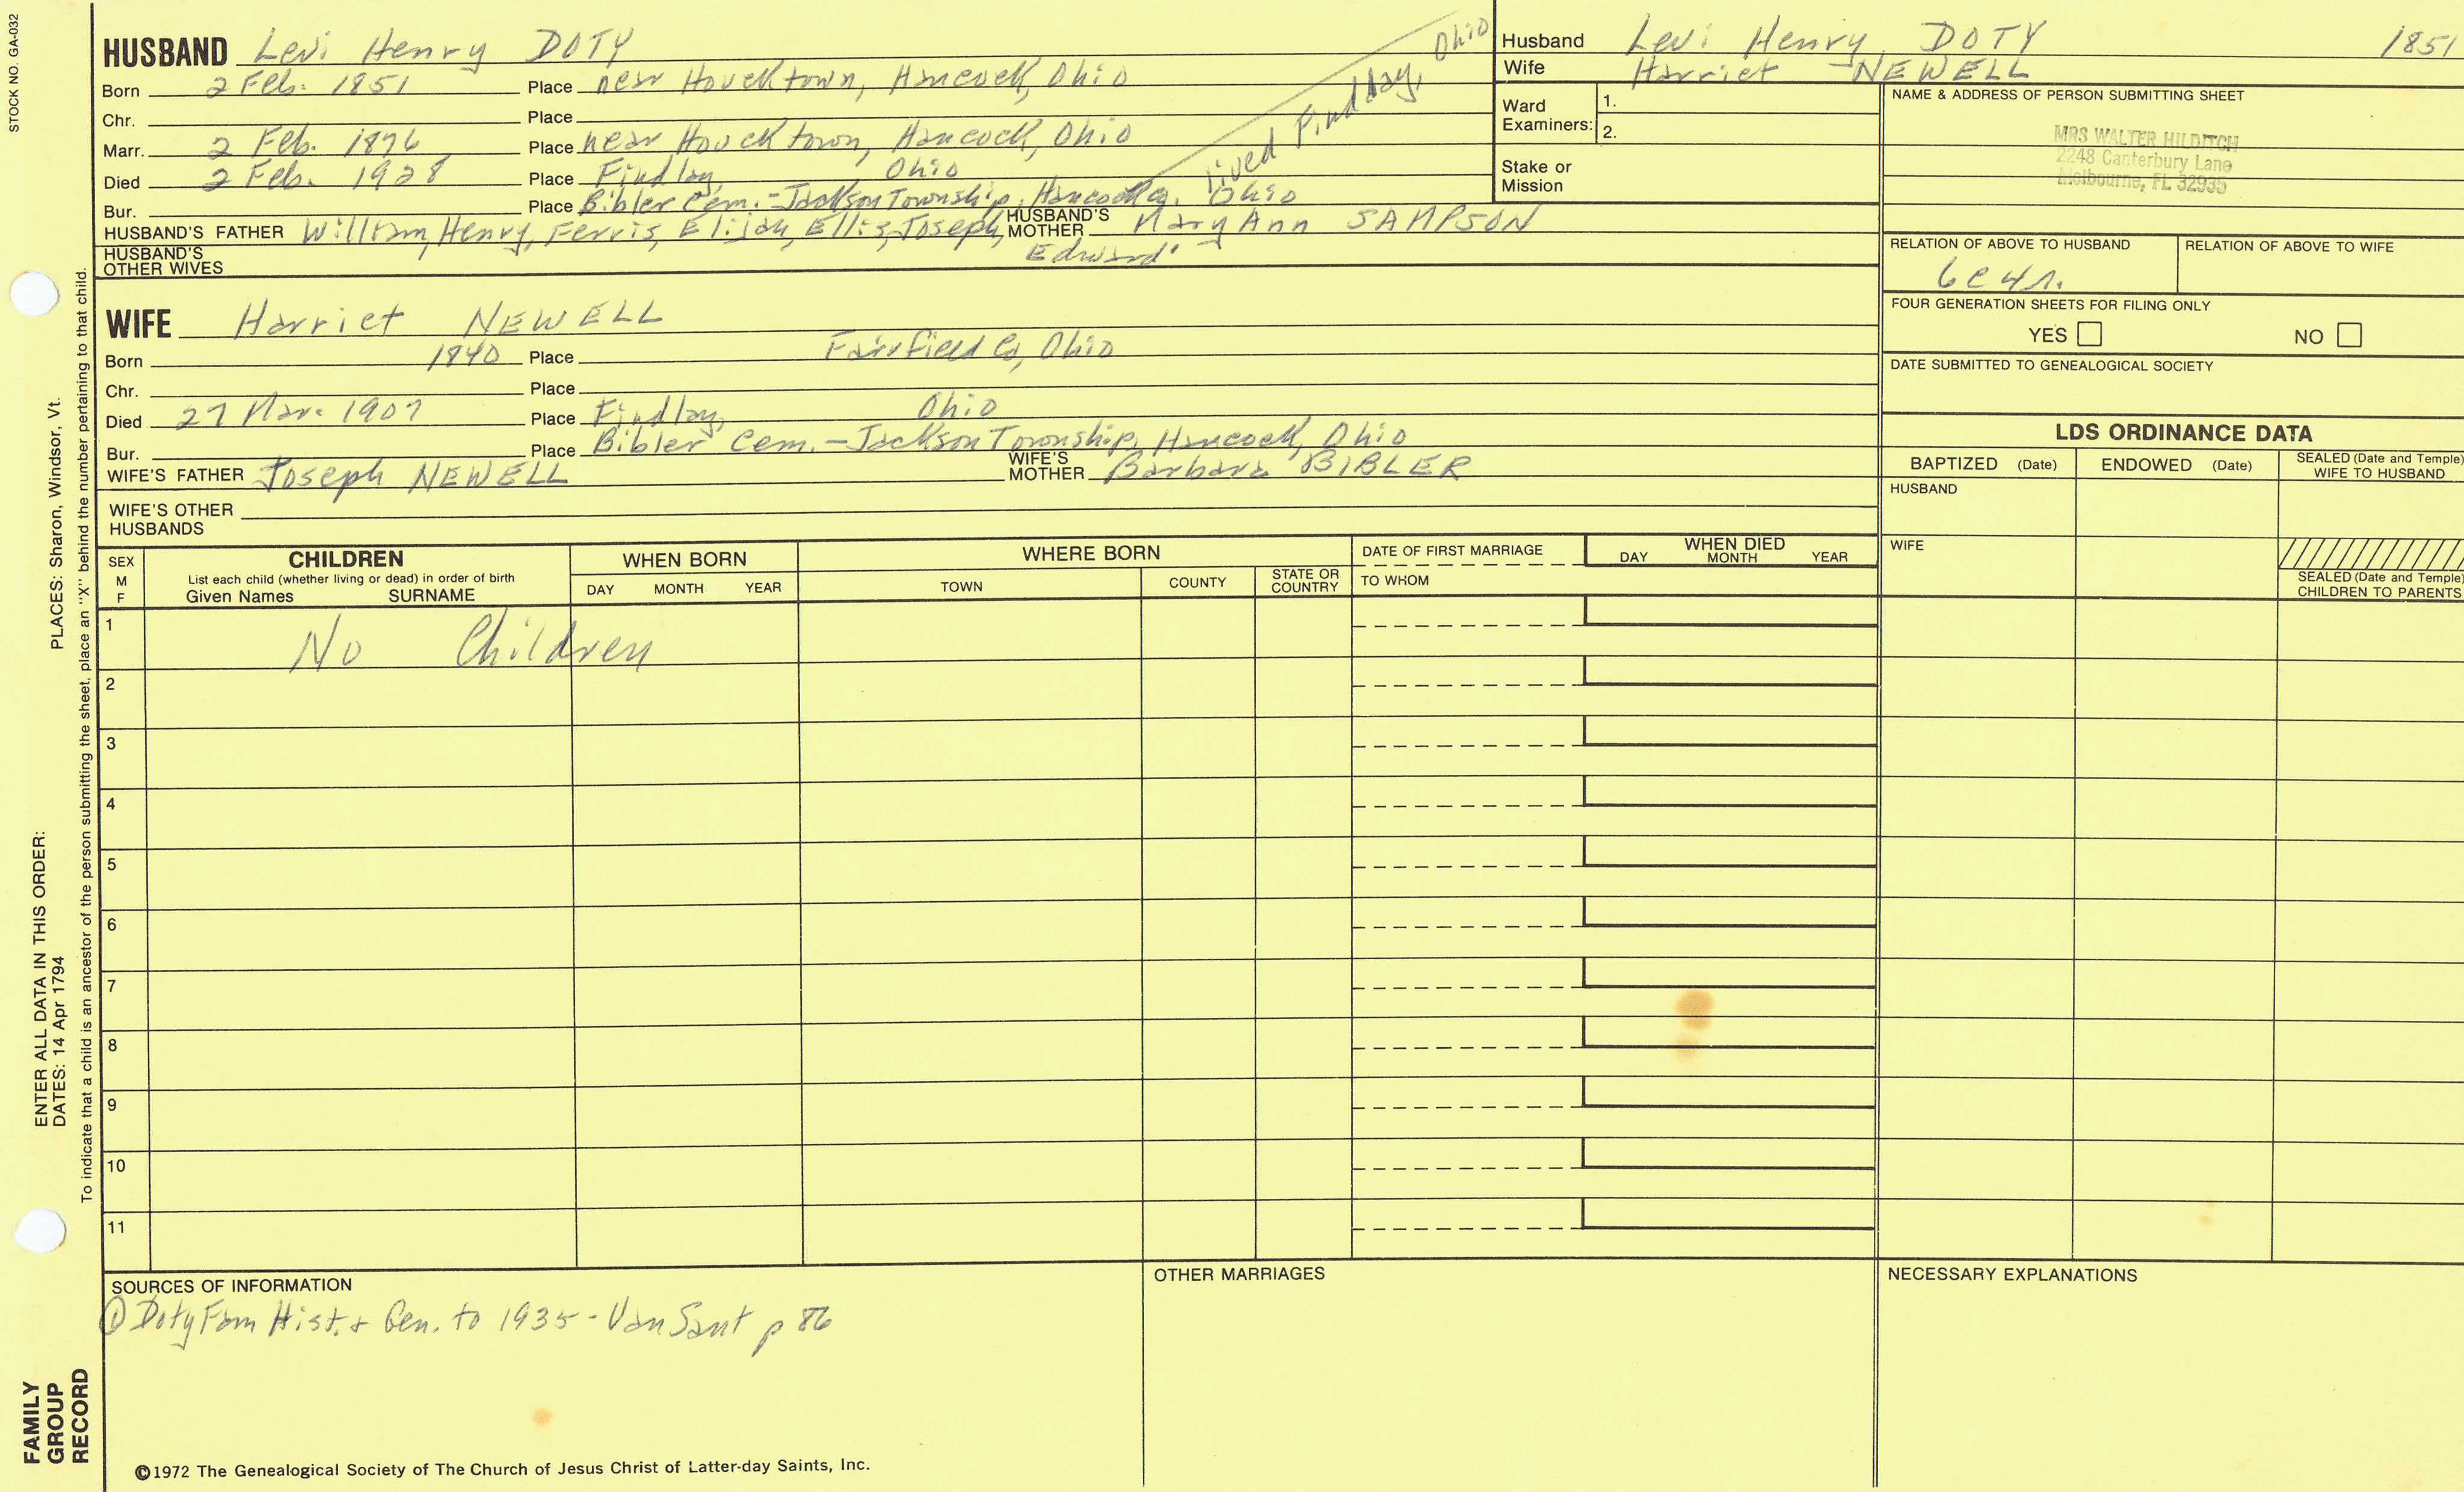 STOCK NO. GA-032
HUSBAND Levi Henry DOTY
Born 2 Feb. 1851 Place near Houcktown, Hancock, Ohio
Chr. Place
Marr. 2 Feb. 1876 Place near Houcktown, Hancock, Ohio
Died 2 Feb. 1928 Place Findlay, Ohio
Bur. Place Bibler Cem.-Jackson Township, Hancock Co. Ohio
lived Findday, Ohio
HUSBAND'S FATHER William, Henry, Ferris, Elijah, Ellis, Joseph, Edward HUSBAND'S MOTHER Mary Ann SAMPSON
HUSBAND'S OTHER WIVES
WIFE Harriet NEWELL
Born 1840 Place Fairfield Co, Ohio
Chr. Place
Died 27 Mar. 1907 Place Findlay, Ohio
Bur. Place Bibler Cem.-Jackson Township, Hancock, Ohio
WIFE'S FATHER Joseph NEWELL WIFE'S MOTHER Barbara BIBLER
WIFE'S OTHER HUSBANDS
Husband Levi Henry DOTY 1851
Wife Harriet NEWELL
Ward Examiners: 1.
2.
Stake or Mission
NAME & ADDRESS OF PERSON SUBMITTING SHEET
MRS WALTER HILDITCH
2248 Canterbury Lane
Melbourne, FL 32935
RELATION OF ABOVE TO HUSBAND RELATION OF ABOVE TO WIFE
6c4r.
FOUR GENERATION SHEETS FOR FILING ONLY
YES NO
DATE SUBMITTED TO GENEALOGICAL SOCIETY
LDS ORDINANCE DATA
BAPTIZED (Date) ENDOWED (Date) SEALED (Date and Temple) WIFE TO HUSBAND
HUSBAND
WIFE
SEALED (Date and Temple) CHILDREN TO PARENTS
SEX M F
CHILDREN
List each child (whether living or dead) in order of birth
Given Names SURNAME
WHEN BORN
DAY MONTH YEAR
WHERE BORN
TOWN COUNTY STATE OR COUNTRY
DATE OF FIRST MARRIAGE
TO WHOM
WHEN DIED
DAY MONTH YEAR
1 No Children
2
3
4
5
6
7
8
9
10
11
SOURCES OF INFORMATION
① Doty Fam Hist. + Gen. to 1935 - Van Sant p 86
OTHER MARRIAGES
NECESSARY EXPLANATIONS
©1972 The Genealogical Society of The Church of Jesus Christ of Latter-day Saints, Inc.
FAMILY
GROUP
RECORD
ENTER ALL DATA IN THIS ORDER:
DATES: 14 Apr 1794 PLACES: Sharon, Windsor, Vt.
To indicate that a child is an ancestor of the person submitting the sheet, place an "X" behind the number pertaining to that child.